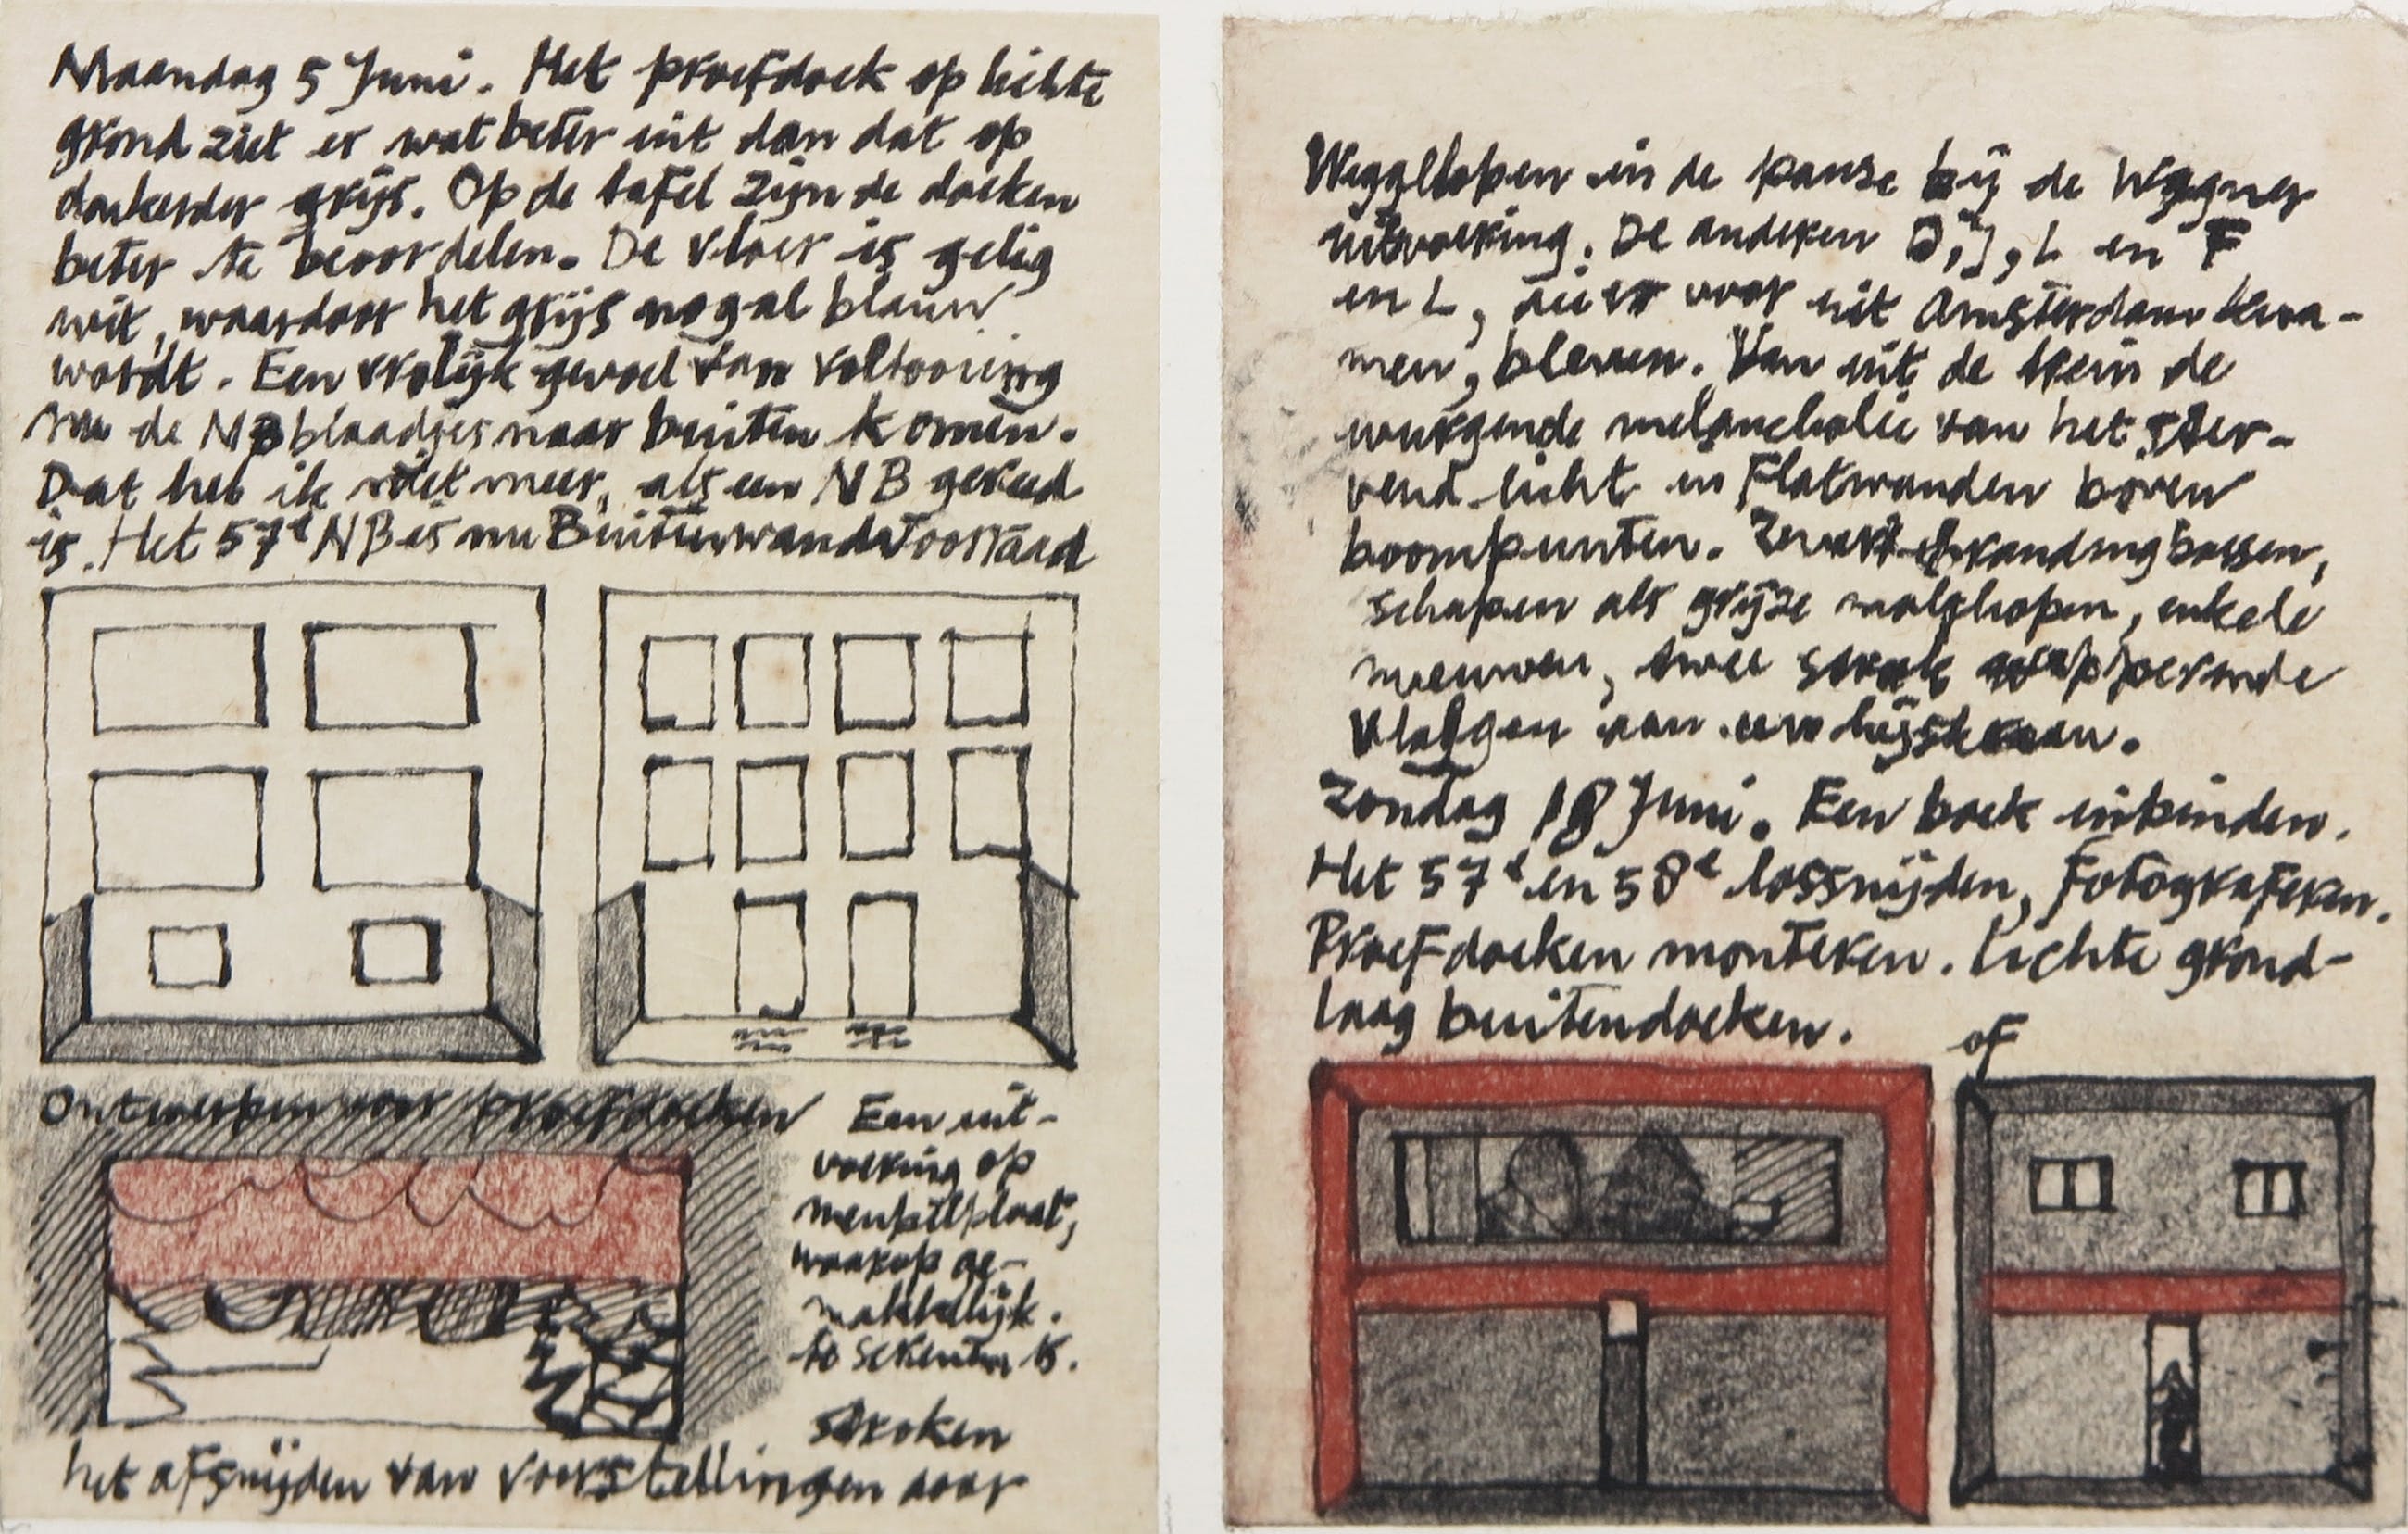 Maandag 5 Juni. Het proefdoek op lichte
grond ziet er wat beter uit dan dat op
donkerder grijs. Op de tafel zijn de doeken
beter te beoordelen. De vloer is gelig
wit, waardoor het grijs nogal blauw
wordt. Een vrolijk gevoel van voltooiing
nu de NB blaadjes naar buiten komen.
Dat heb ik niet meer, als een NB gereed
is. Het 57e NB is nu Buitenwand
Ontwerpen voor proefdoeken
Een uit-
voering op
meubelplaat,
waarop ge-
makkelijk
te is.
stroken
het afsnijden van voorstellingen door
Weggelopen in de pauze bij de Wagner
uitvoering. De anderen J, L en F
en L, die er voor uit Amsterdam kwa-
men, bleven. Van uit de trein de
wurgende melancholie van het ster-
vend licht in Flatwanden boven
boompunten. bossen,
schapen als grijze molshopen, enkele
meeuwen, twee strak wapperende
vlaggen aan een hijskraan.
Zondag 18 Juni. Een boek inbinden.
Het 57e en 58e lossnijden, fotograferen.
Proefdoeken monteren. Lichte grond-
laag buitendoeken.
of